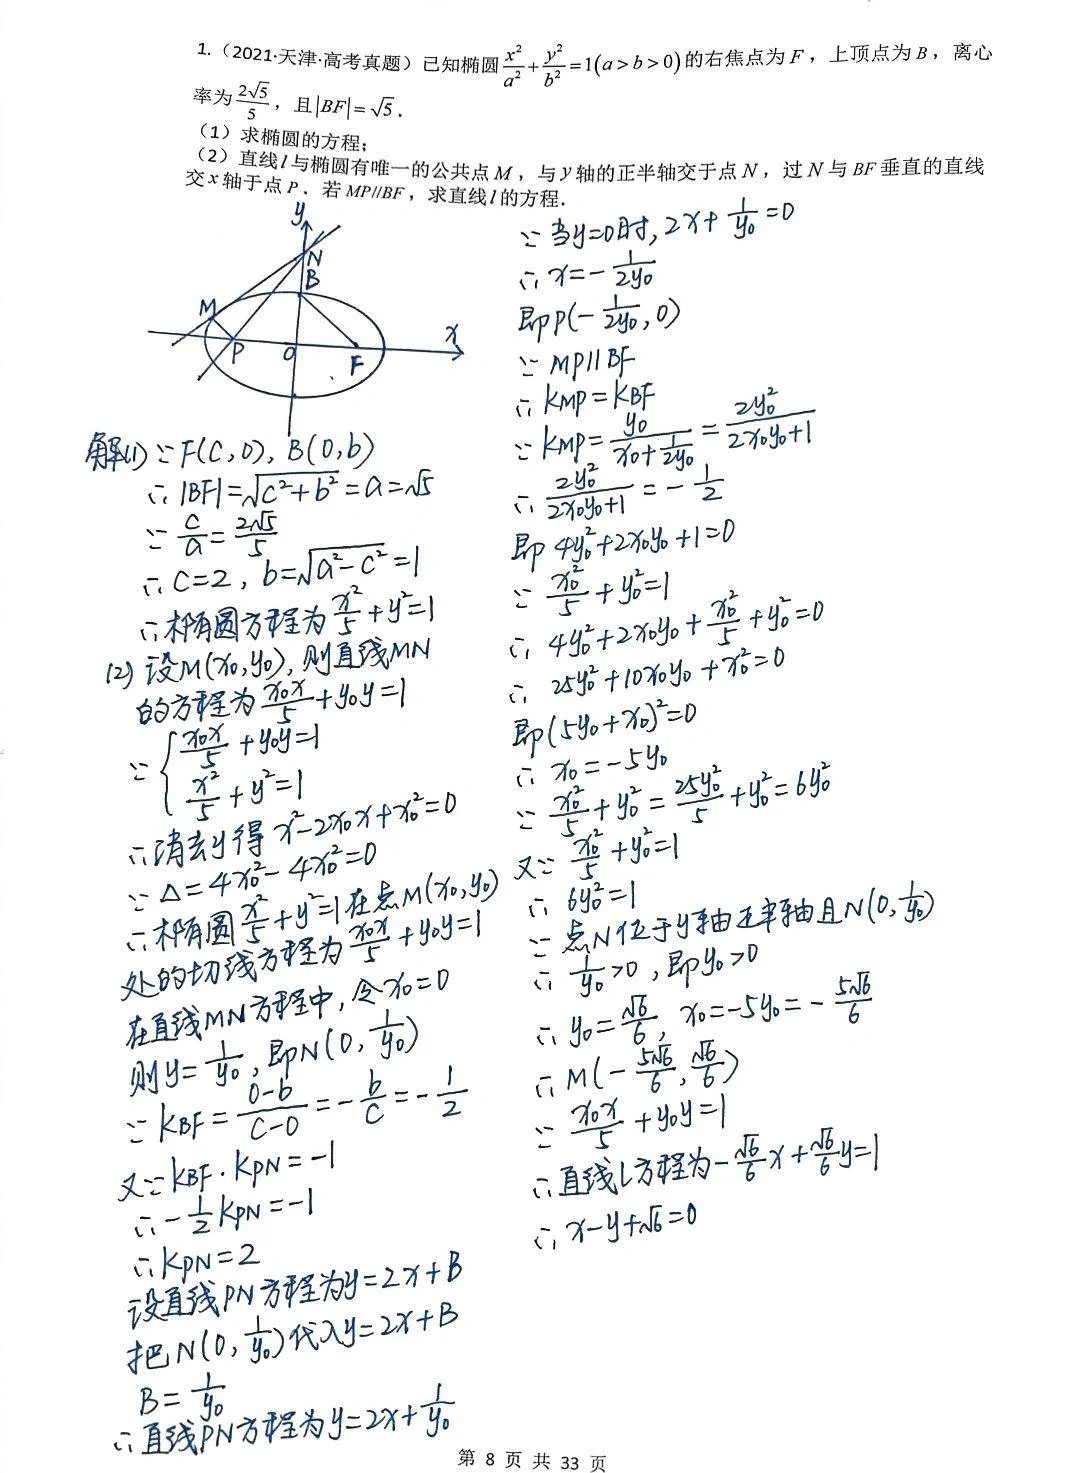 1.（2021·天津·高考真题）已知椭圆 x²/a² + y²/b² = 1(a > b > 0) 的右焦点为 F，上顶点为 B，离心
率为 2√5/5，且|BF| = √5．
（1）求椭圆的方程；
（2）直线 l 与椭圆有唯一的公共点 M，与 y 轴的正半轴交于点 N，过 N 与 BF 垂直的直线
交 x 轴于点 P．若 MP//BF，求直线 l 的方程．
y
N
B
M
P
O
F
x
解(1) ∵ F(C,0), B(0,b)
∴ |BF|=√(c²+b²)=a=√5
∵ c/a = 2√5/5
∴ C=2, b=√(a²-c²)=1
∴ 椭圆方程为 x²/5+y²=1
(2) 设M(x₀,y₀), 则直线MN
的方程为 x₀x/5+y₀y=1
∵ { x₀x/5+y₀y=1
x²/5+y²=1
∴ 消去y得 x²-2x₀x+x₀²=0
∵ △=4x₀²-4x₀²=0
∴ 椭圆 x²/5+y²=1在点M(x₀,y₀)
处的切线方程为 x₀x/5+y₀y=1
在直线MN方程中, 令x₀=0
则y=1/y₀, 即N(0,1/y₀)
∵ kBF=(0-b)/(C-0)=-b/c=-1/2
又∵ kBF·kPN=-1
∴ -1/2 kPN=-1
∴ kPN=2
设直线PN方程为y=2x+B
把N(0,1/y₀)代入y=2x+B
B=1/y₀
∴ 直线PN方程为y=2x+1/y₀
∵ 当y=0时, 2x+1/y₀=0
∴ x=-1/2y₀
即P(-1/2y₀,0)
∵ MP//BF
∴ kMP=kBF
∵ kMP=y₀/(x₀+1/2y₀)=2y₀²/(2x₀y₀+1)
∴ 2y₀²/(2x₀y₀+1)=-1/2
即 4y₀²+2x₀y₀+1=0
∵ x₀²/5+y₀²=1
∴ 4y₀²+2x₀y₀+x₀²/5+y₀²=0
∴ 25y₀²+10x₀y₀+x₀²=0
即(5y₀+x₀)²=0
∴ x₀=-5y₀
∵ x₀²/5+y₀²=25y₀²/5+y₀²=6y₀²
又∵ x₀²/5+y₀²=1
∴ 6y₀²=1
∵ 点N位于y轴正半轴且N(0,1/y₀)
∴ 1/y₀>0, 即y₀>0
∴ y₀=√6/6, x₀=-5y₀=-5√6/6
∴ M(-5√6/6,√6/6)
∵ x₀x/5+y₀y=1
∴ 直线l方程为-√6/6x+√6/6y=1
∴ x-y+√6=0
第 8 页 共 33 页